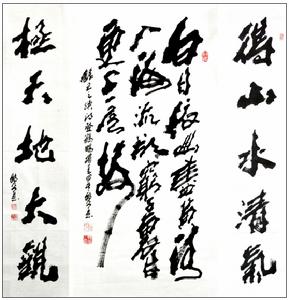 得山水清氣
白日依山盡黃河
入海流欲窮千里目
更上一層樓
極天地大觀